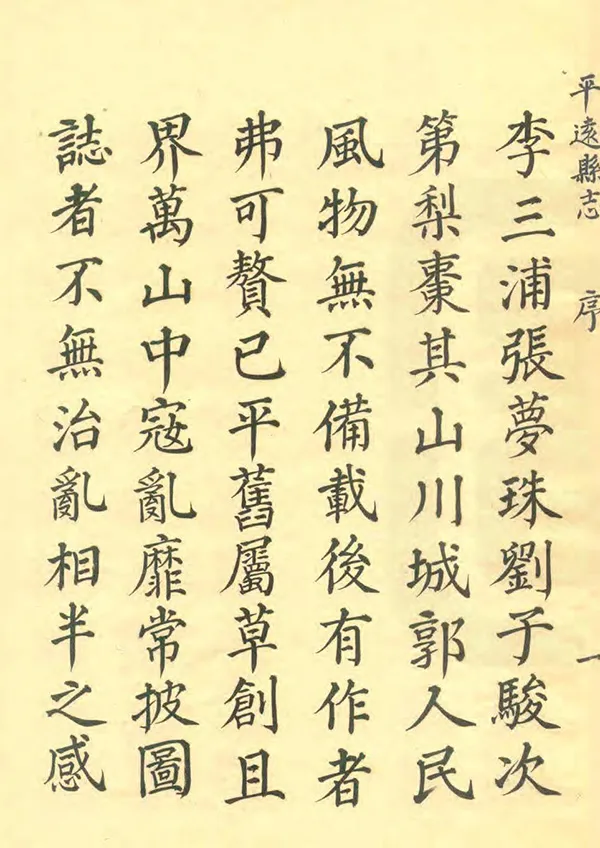 平遠縣志 序 一
李三浦張夢珠劉子駿次
第梨棗其山川城郭人民
風物無不備載後有作者
弗可贅已平舊屬草創且
界萬山中寇亂靡常披圖
誌者不無治亂相半之感